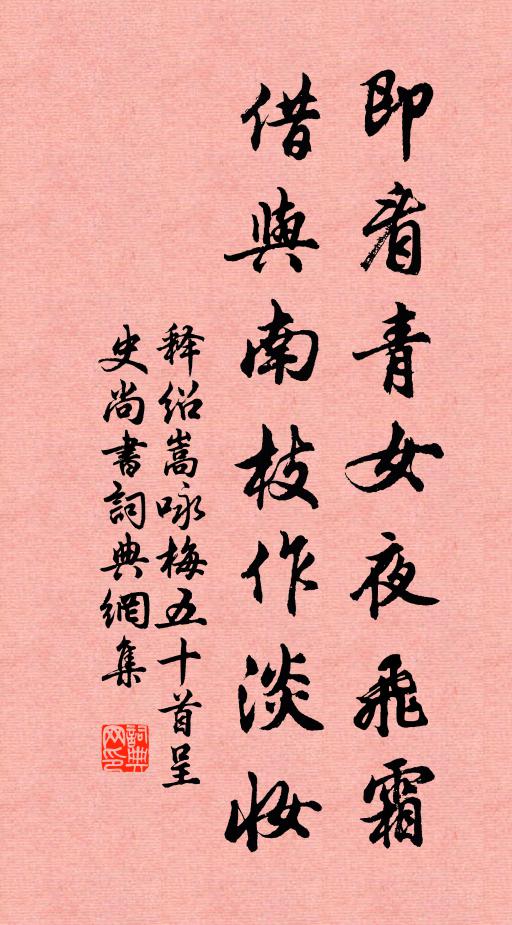 即看青女夜飛霜
借與南枝作淡妝
释紹嵩咏梅五十首呈
史尚書詞典網集
詞典网印